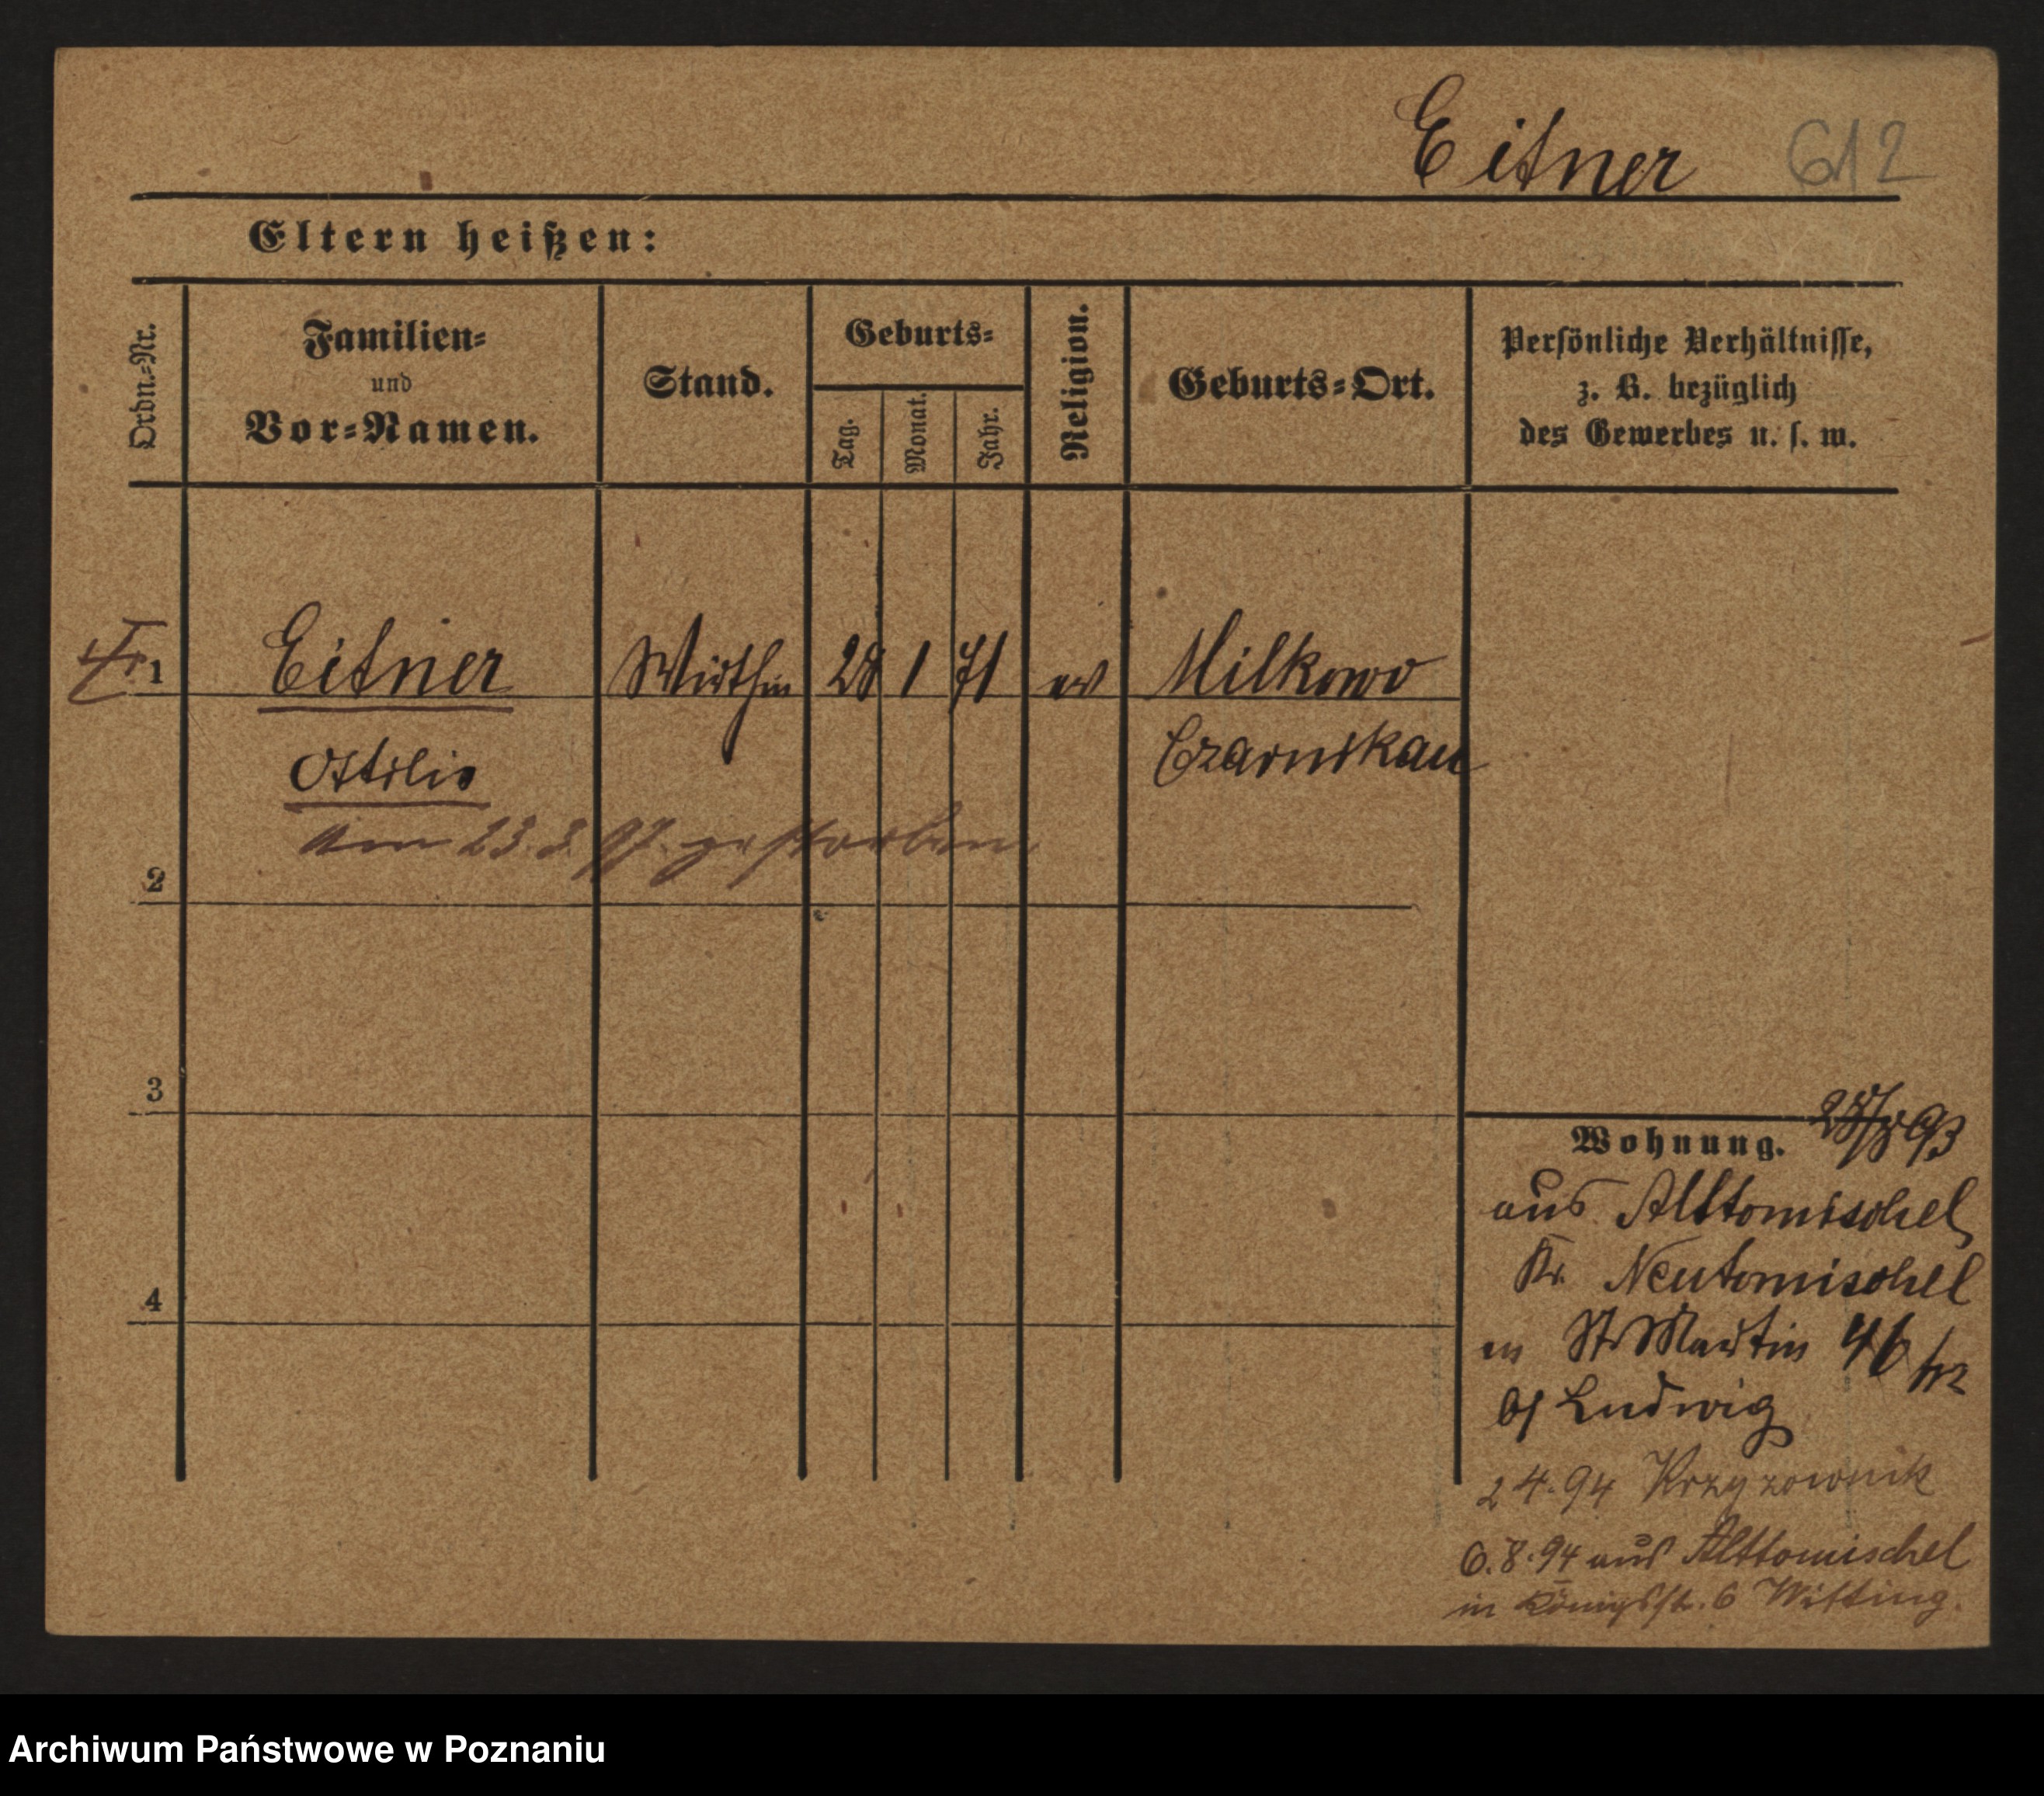 Eitner 612
Eltern heißen:
Ordn.-Nr.
Familien-
und
Vor-Namen.
Stand.
Geburts-
Tag.
Monat.
Jahr.
Religion.
Geburts-Ort.
Persönliche Verhältnisse,
z. B. bezüglich
des Gewerbes u. s. w.
1 Eitner Wirthin 28 1 71 ev Milkowo
Ottilie Czarnikau
Am 23. 3. 97. gestorben.
2
3
4
Wohnung. 28/8 93
aus Alttomischel
Kr. Neutomischel
in St Martin 46
bj Ludwig
2 4. 94 Krzyzownik
6. 8. 94 aus Alttomischel
in Königsstr. 6 Witting.
Archiwum Państwowe w Poznaniu